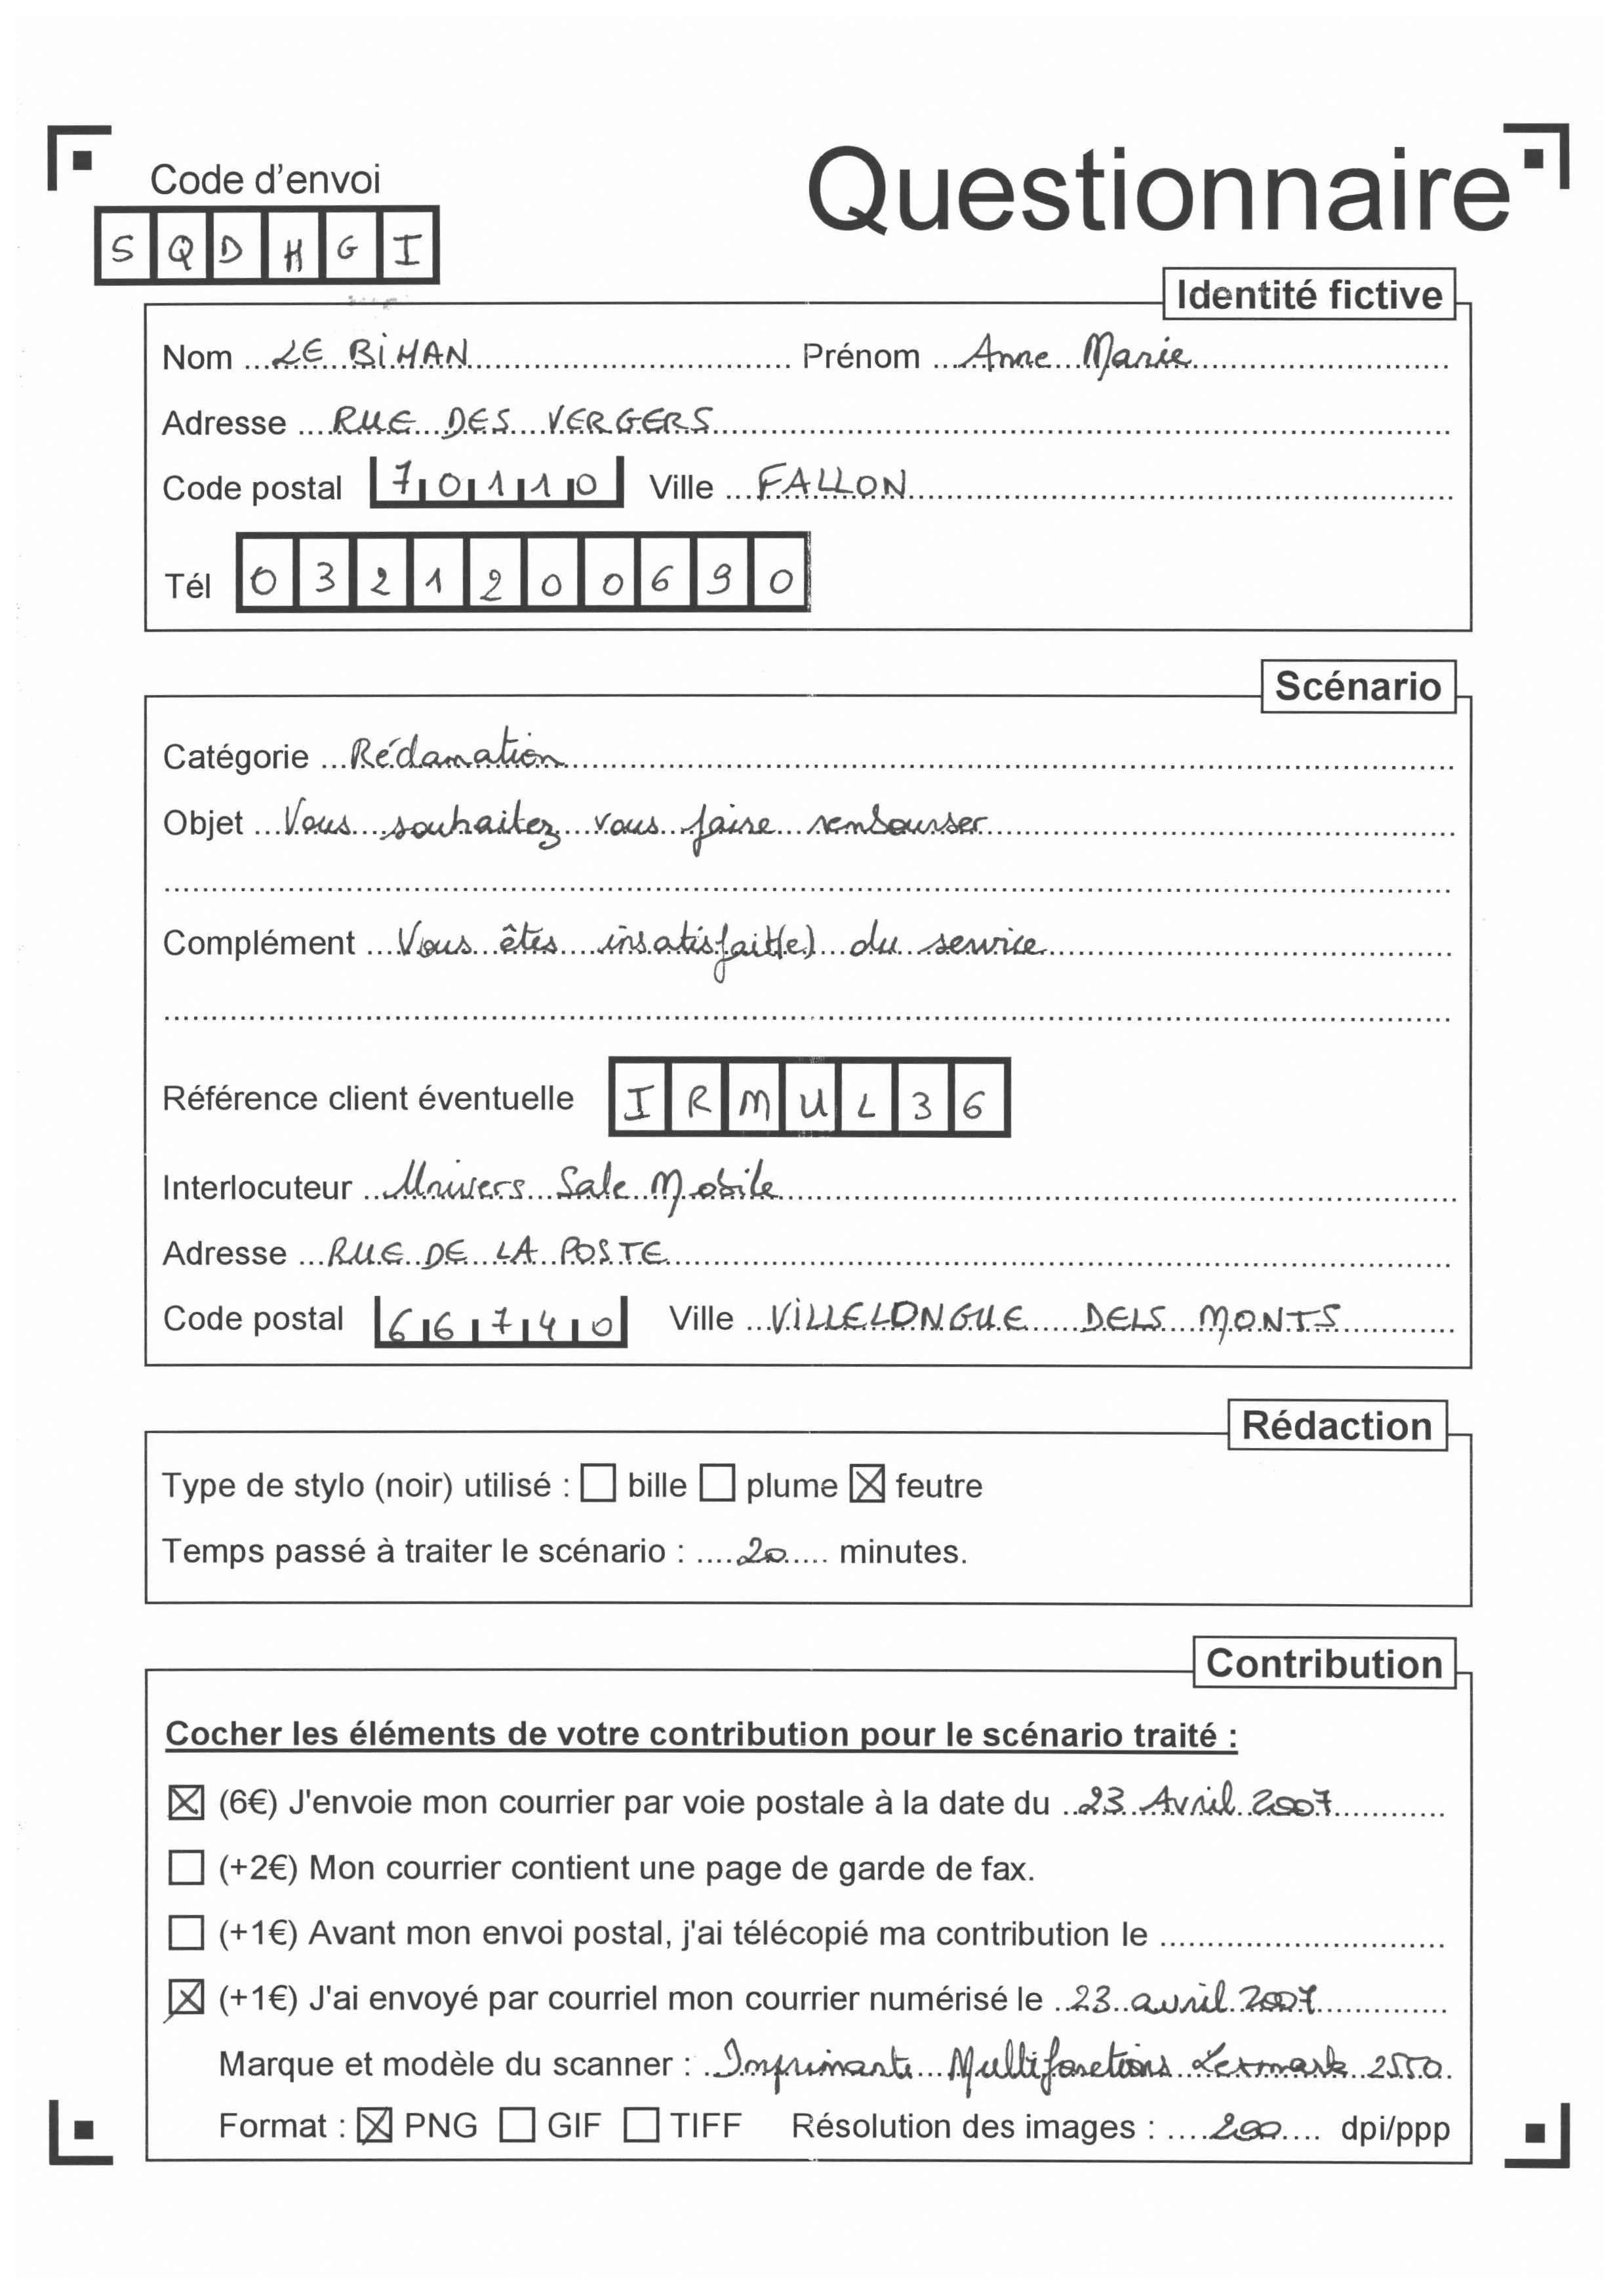 Code d'envoi
Questionnaire
S Q D H G I
Identité fictive
Nom LE BiHAN Prénom Anne Marie
Adresse RUE DES VERGERS
Code postal 70110 Ville FALLON
Tél 0321200690
Scénario
Catégorie Réclamation
Objet Vous souhaitez vous faire rembourser
Complément Vous êtes insatisfait(e) du service
Référence client éventuelle I R M U L 3 6
Interlocuteur Univers Sale Mobile
Adresse RUE DE LA POSTE
Code postal 66740 Ville ViLLELONGUE DELS MONTS
Rédaction
Type de stylo (noir) utilisé : ☐ bille ☐ plume ☒ feutre
Temps passé à traiter le scénario : 20 minutes.
Contribution
Cocher les éléments de votre contribution pour le scénario traité :
☒ (6€) J'envoie mon courrier par voie postale à la date du 23 Avril 2007
☐ (+2€) Mon courrier contient une page de garde de fax.
☐ (+1€) Avant mon envoi postal, j'ai télécopié ma contribution le
☒ (+1€) J'ai envoyé par courriel mon courrier numérisé le 23 avril 2007
Marque et modèle du scanner : Imprimante Multifonctions Lexmark 2550
Format : ☒ PNG ☐ GIF ☐ TIFF Résolution des images : 200 dpi/ppp